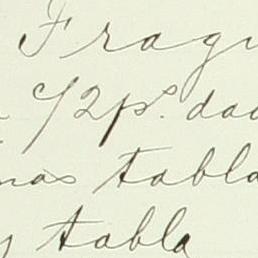 Fragu
72ps. dad
nas tabla
y tabla